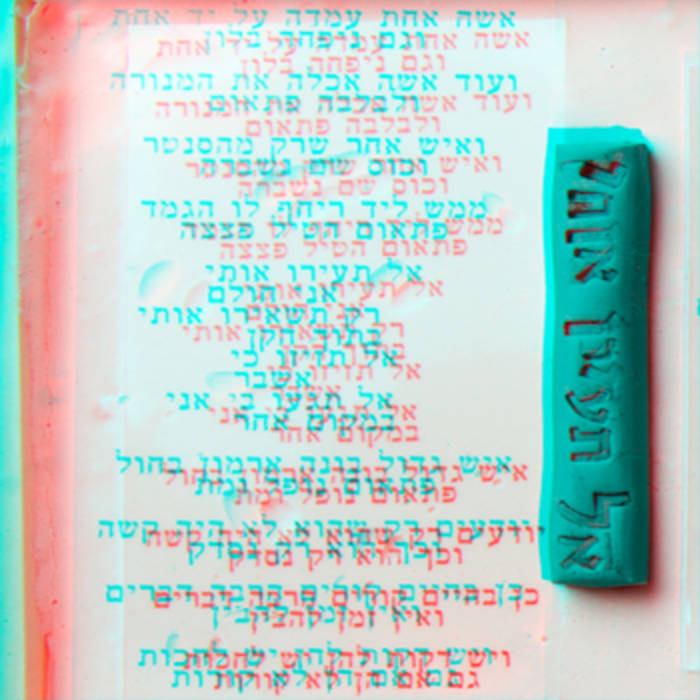 אשה אחת עמדה על יד אחת
וגם ניפחה בלון
ועוד אשה אכלה את המנורה
ולבלבה פתאום
ואיש אחר שרק מהסנטר
וכוס שם נשברה
ממש ליד ריחף לו הגמד
פתאום הטיל פצצה
אל תעירו אותי
אני חולם
רק תשאירו אותי
בתוך הקן
אל תזיזו כי
אשבר
אל תגעו בי אני
במקום אחר
איש גדול בונה ארמון בחול
פתאום נופל ומת
יודעים רק שהוא לא היה קשה
וכך הוא רק נסדק
כך בחיים קורים הרבה דברים
ואין זמן להבין
ויש דקות להן יש לחכות
גם אם הן לא קורות
אל תעירו אותי